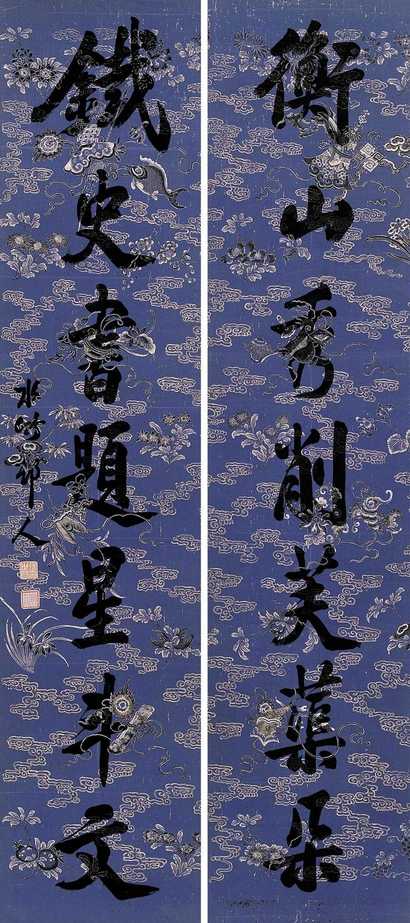 衡山秀削芙蕖朵
鐵史書題星斗文
水竹邨人